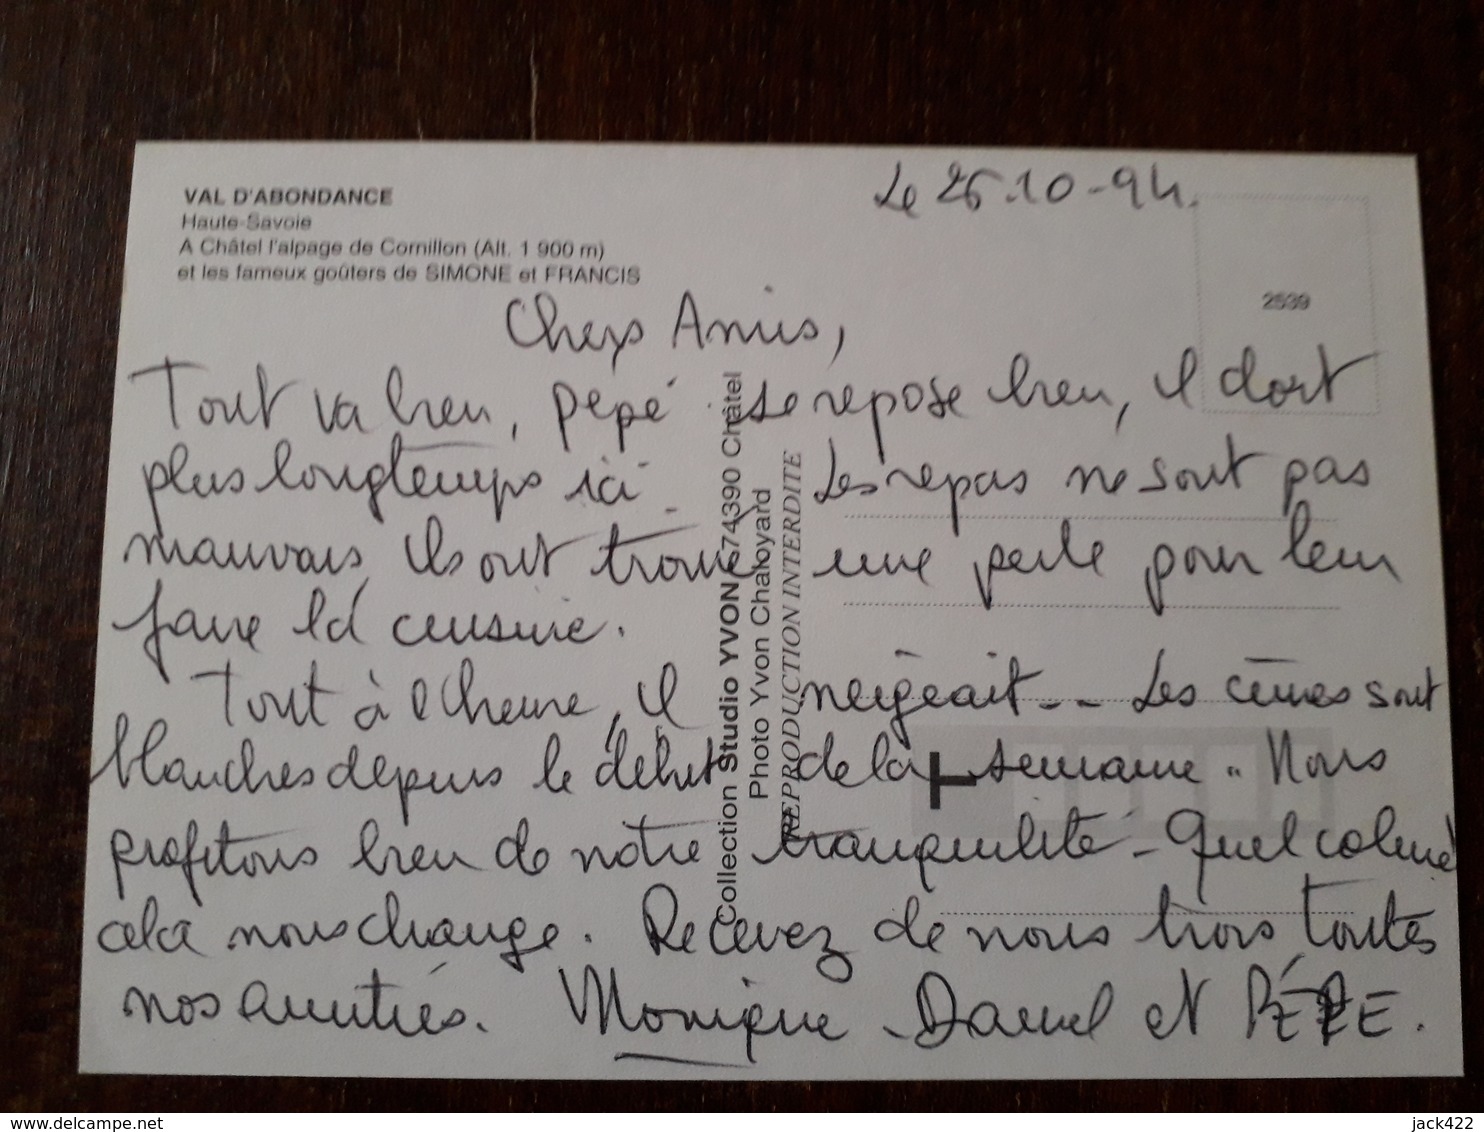 VAL D'ABONDANCE
Haute-Savoie
A Châtel l'alpage de Cornillon (Alt. 1 900 m)
et les fameux goûters de SIMONE et FRANCIS
Le 26.10-94.
2539
Chers Amis,
Tout va bien, pépé se repose bien, il dort
plus longtemps ici. Les repas ne sont pas
mauvais, ils ont trouvé une perle pour leur
faire la cuisine.
Tout à l'heure, il neigeait... Les cîmes sont
blanches depuis le début de la semaine.. Nous
profitons bien de notre tranquilité - Quel calme
cela nous change. Recevez de nous trois toutes
nos amitiés. Monique - Daniel et PÉPÉ.
Collection Studio YVON - 74390 Châtel
Photo Yvon Chaloyard
REPRODUCTION INTERDITE
www.delcampe.net
jack422